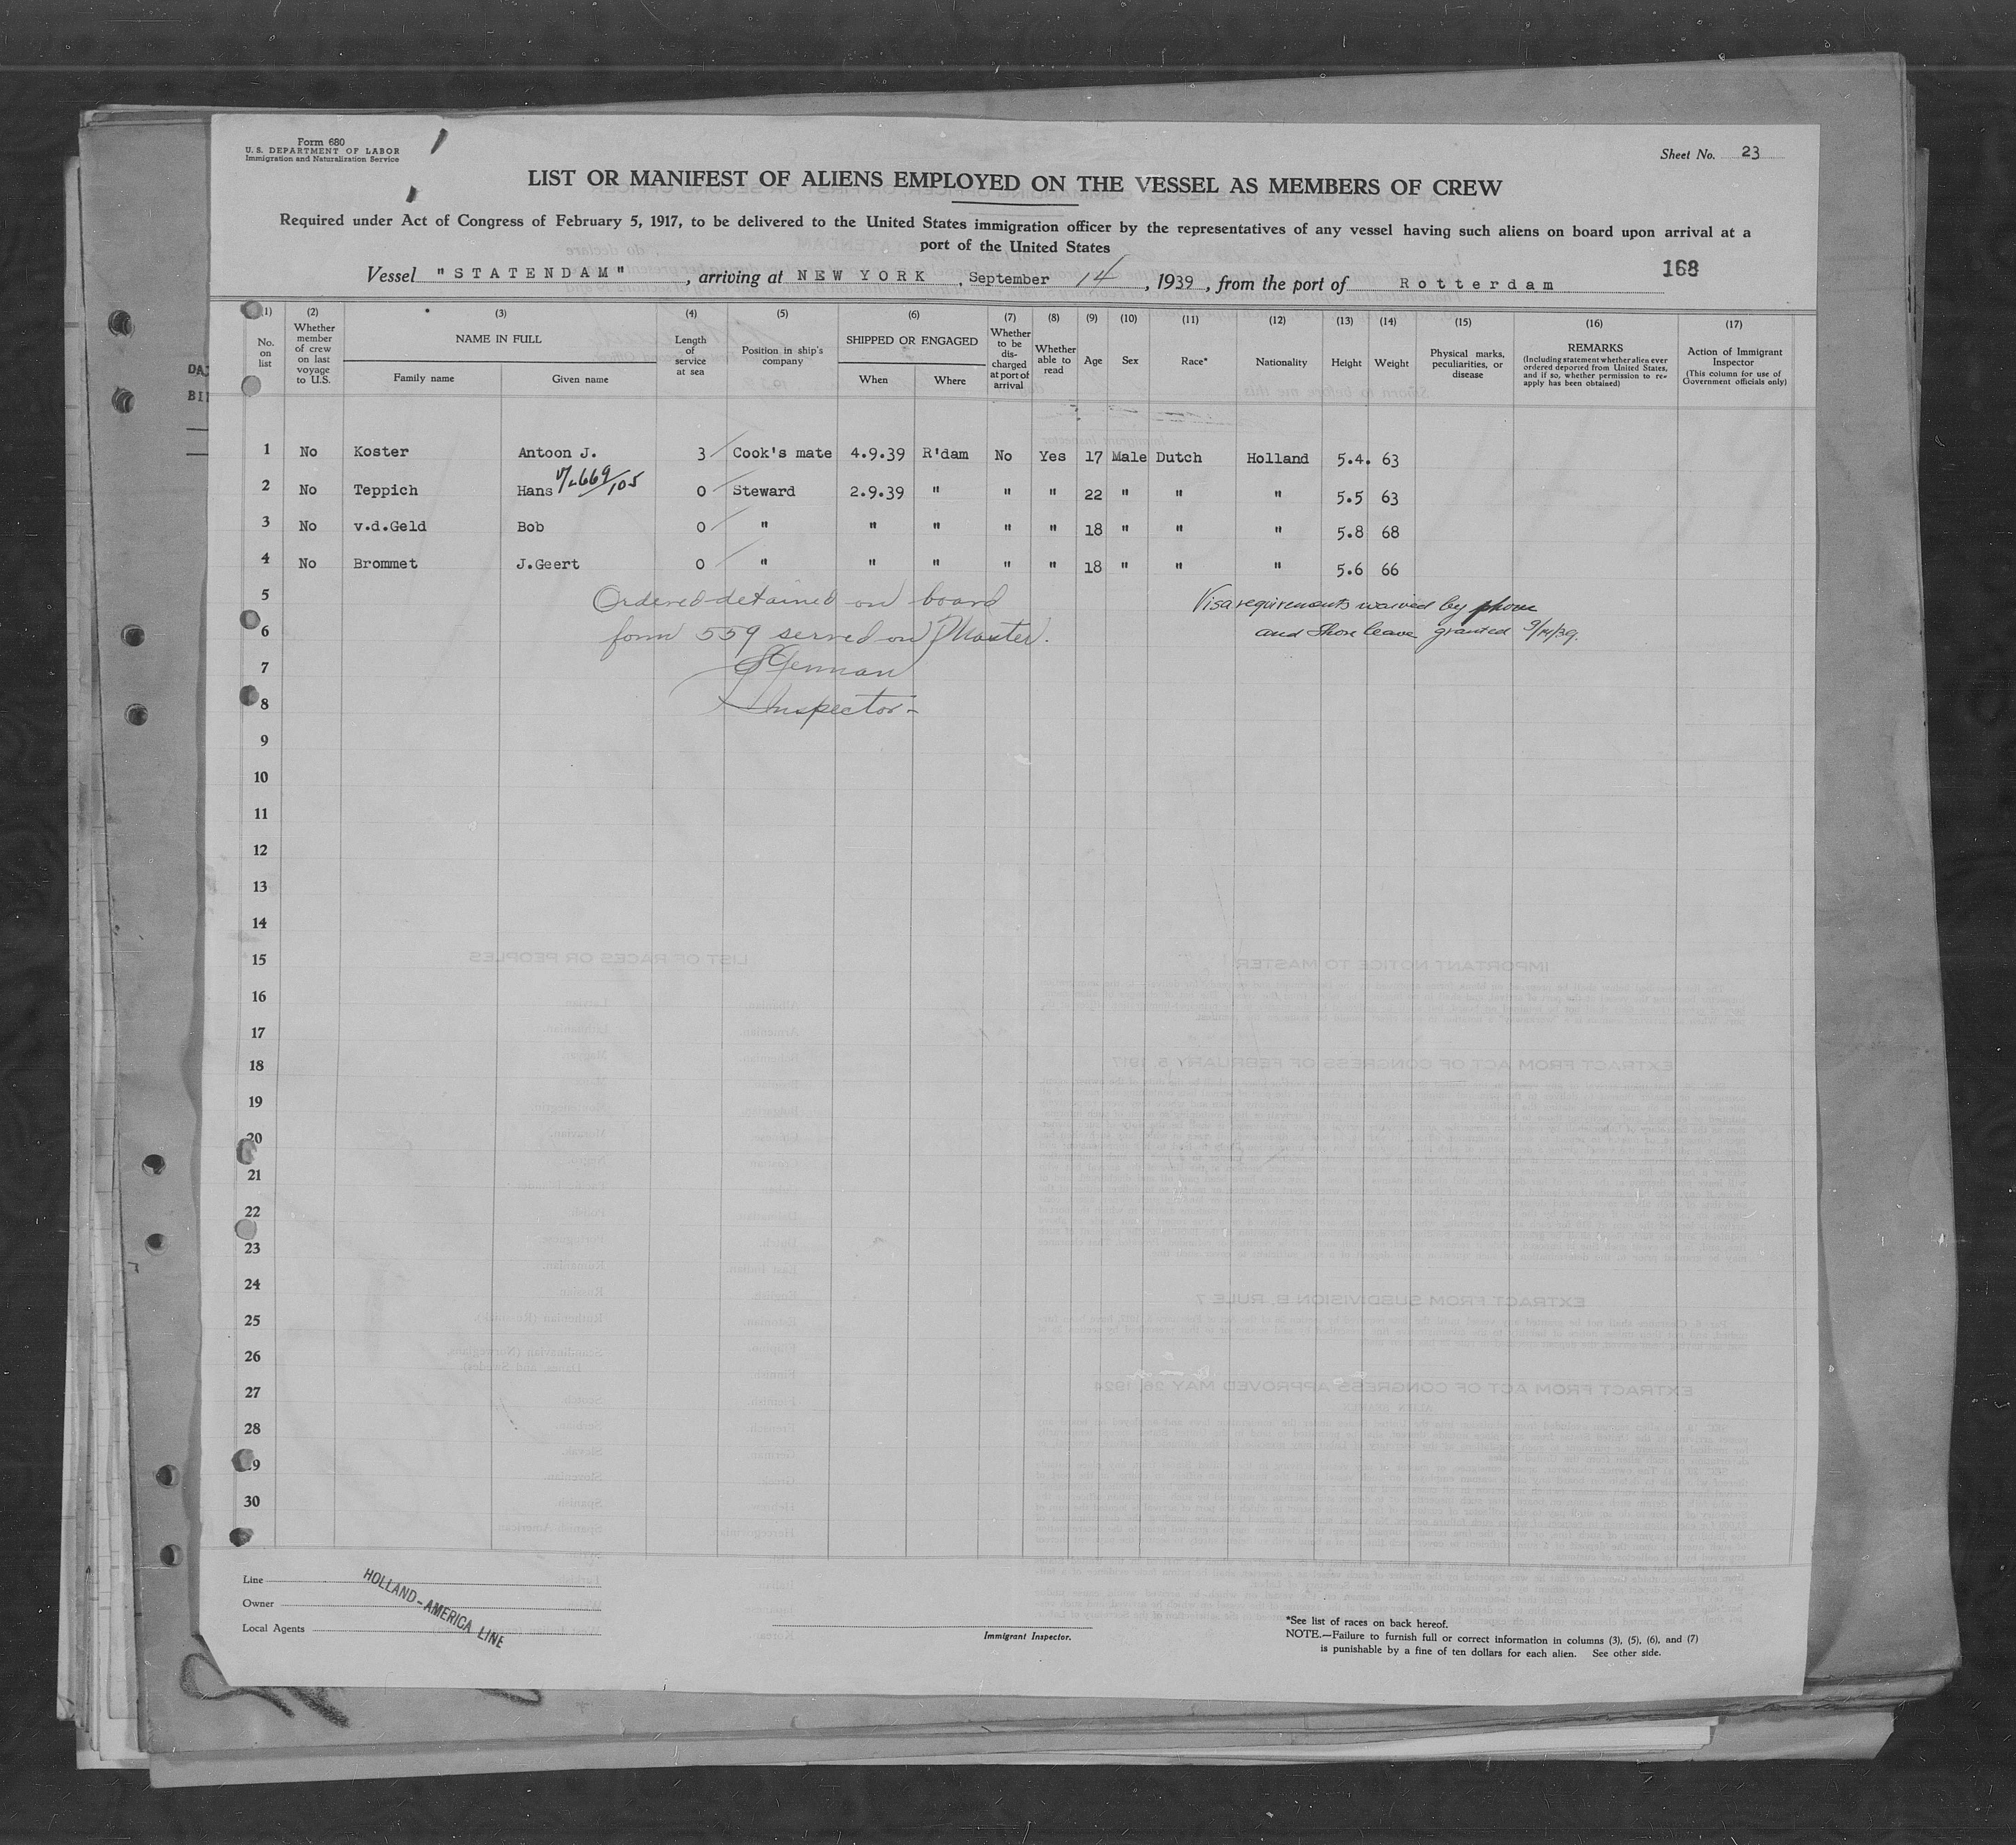 Form 680
U. S. DEPARTMENT OF LABOR
Immigration and Naturalization Service
Sheet No. 23
LIST OR MANIFEST OF ALIENS EMPLOYED ON THE VESSEL AS MEMBERS OF CREW
Required under Act of Congress of February 5, 1917, to be delivered to the United States immigration officer by the representatives of any vessel having such aliens on board upon arrival at a
port of the United States
168
Vessel "STATENDAM", arriving at NEW YORK, September 14, 1939, from the port of Rotterdam
(1) No. on list
(2) Whether member of crew on last voyage to U.S.
(3) NAME IN FULL Family name Given name
(4) Length of service at sea
(5) Position in ship's company
(6) SHIPPED OR ENGAGED When Where
(7) Whether to be discharged at port of arrival
(8) Whether able to read
(9) Age
(10) Sex
(11) Race*
(12) Nationality
(13) Height
(14) Weight
(15) Physical marks, peculiarities, or disease
(16) REMARKS (Including statement whether alien ever ordered deported from United States, and if so, whether permission to reapply has been obtained)
(17) Action of Immigrant Inspector (This column for use of Government officials only)
1 No Koster Antoon J. 3 Cook's mate 4.9.39 R'dam No Yes 17 Male Dutch Holland 5.4. 63
2 No Teppich Hans 0 Steward 2.9.39 " " " 22 " " " 5.5 63
3 No v.d.Geld Bob 0 " " " " " 18 " " " 5.8 68
4 No Brommet J.Geert 0 " " " " " 18 " " " 5.6 66
5 Ordered detained on board Visa requirements waived by phone
6 form 559 served on Master. and Shore leave granted 9/14/39.
7
8 Inspector-
9
10
11
12
13
14
15
16
17
18
19
20
21
22
23
24
25
26
27
28
29
30
Line
Owner
Local Agents
HOLLAND-AMERICA LINE
Immigrant Inspector.
*See list of races on back hereof.
NOTE.—Failure to furnish full or correct information in columns (3), (5), (6), and (7)
is punishable by a fine of ten dollars for each alien. See other side.